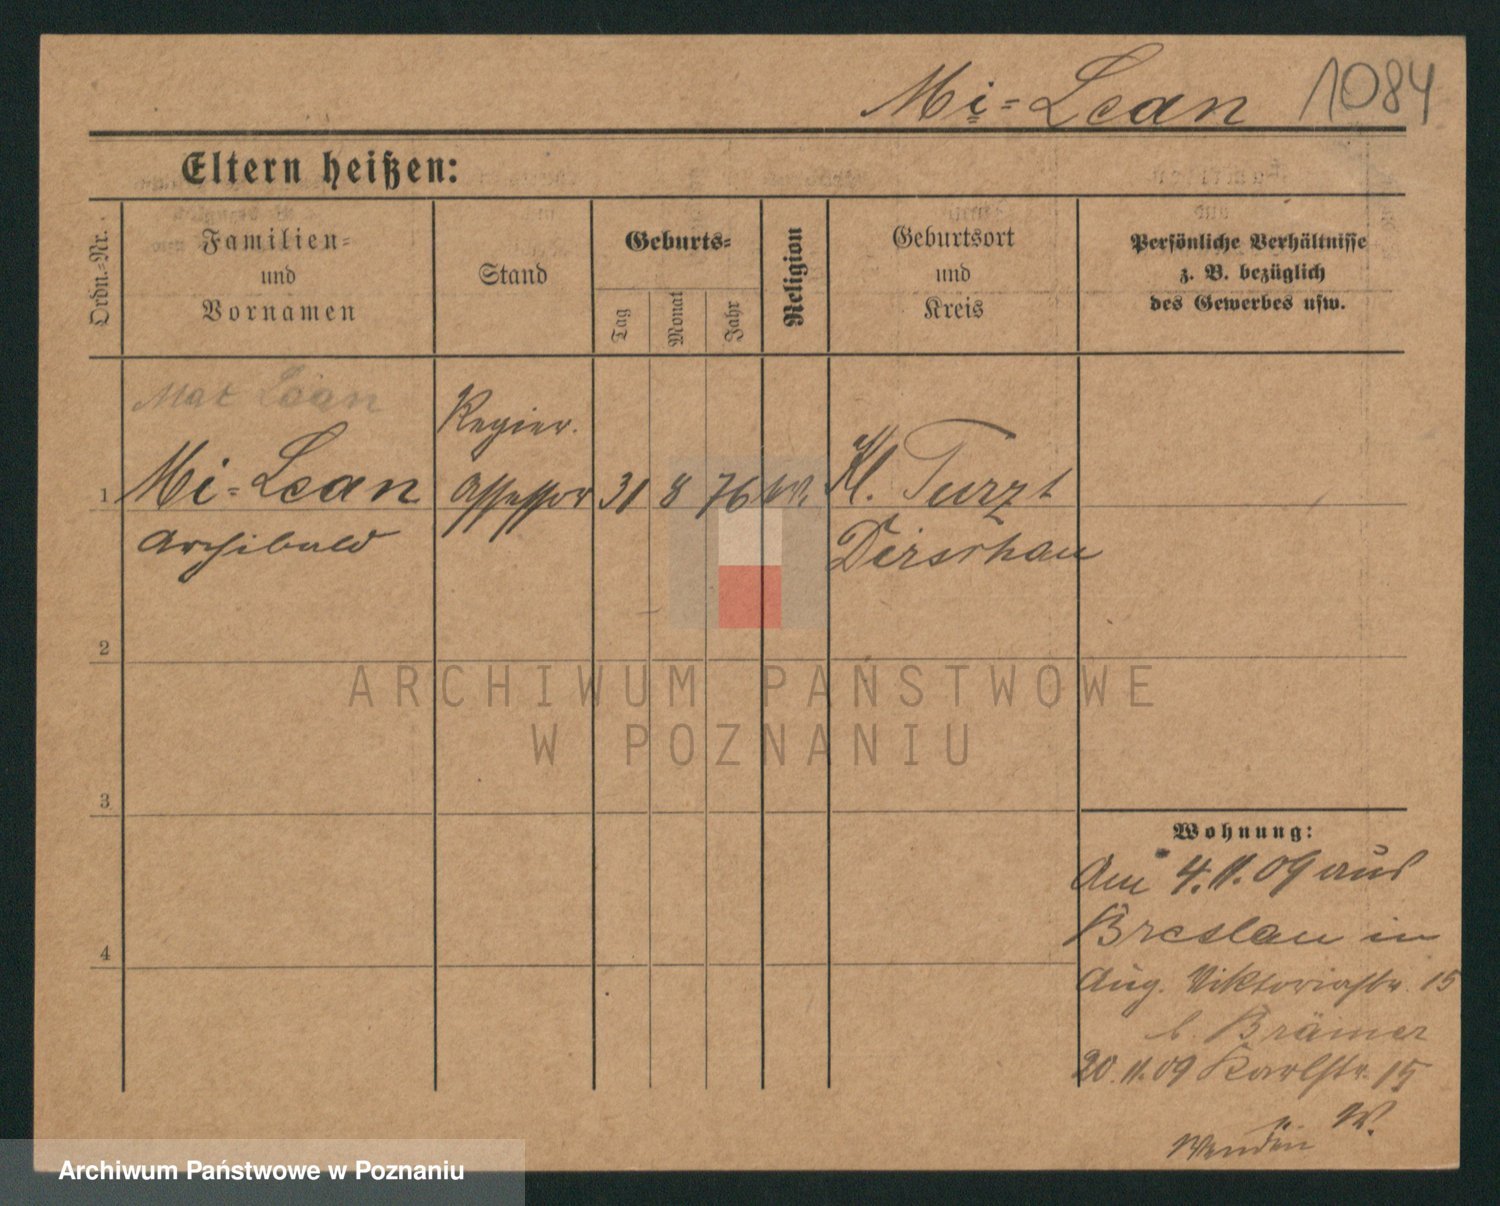 Mi=Lean 1084
Eltern heißen:
Ordn.=Nr.
Familien=
und
Vornamen
Stand
Geburts=
Tag
Monat
Jahr
Religion
Geburtsort
und
Kreis
Persönliche Verhältnisse
z. B. bezüglich
des Gewerbes usw.
Lean
Regier.
1 Mi=Lean Assessor 31 8 76 Kl. Turzt
Archibald Dirschau
2
3
4
Wohnung:
Am 4.11.09 aus
Breslau in
Aug. Viktoriastr. 15
b. Brämer
20.11.09 Karlstr. 15
W.
ARCHIWUM PAŃSTWOWE
W POZNANIU
Archiwum Państwowe w Poznaniu